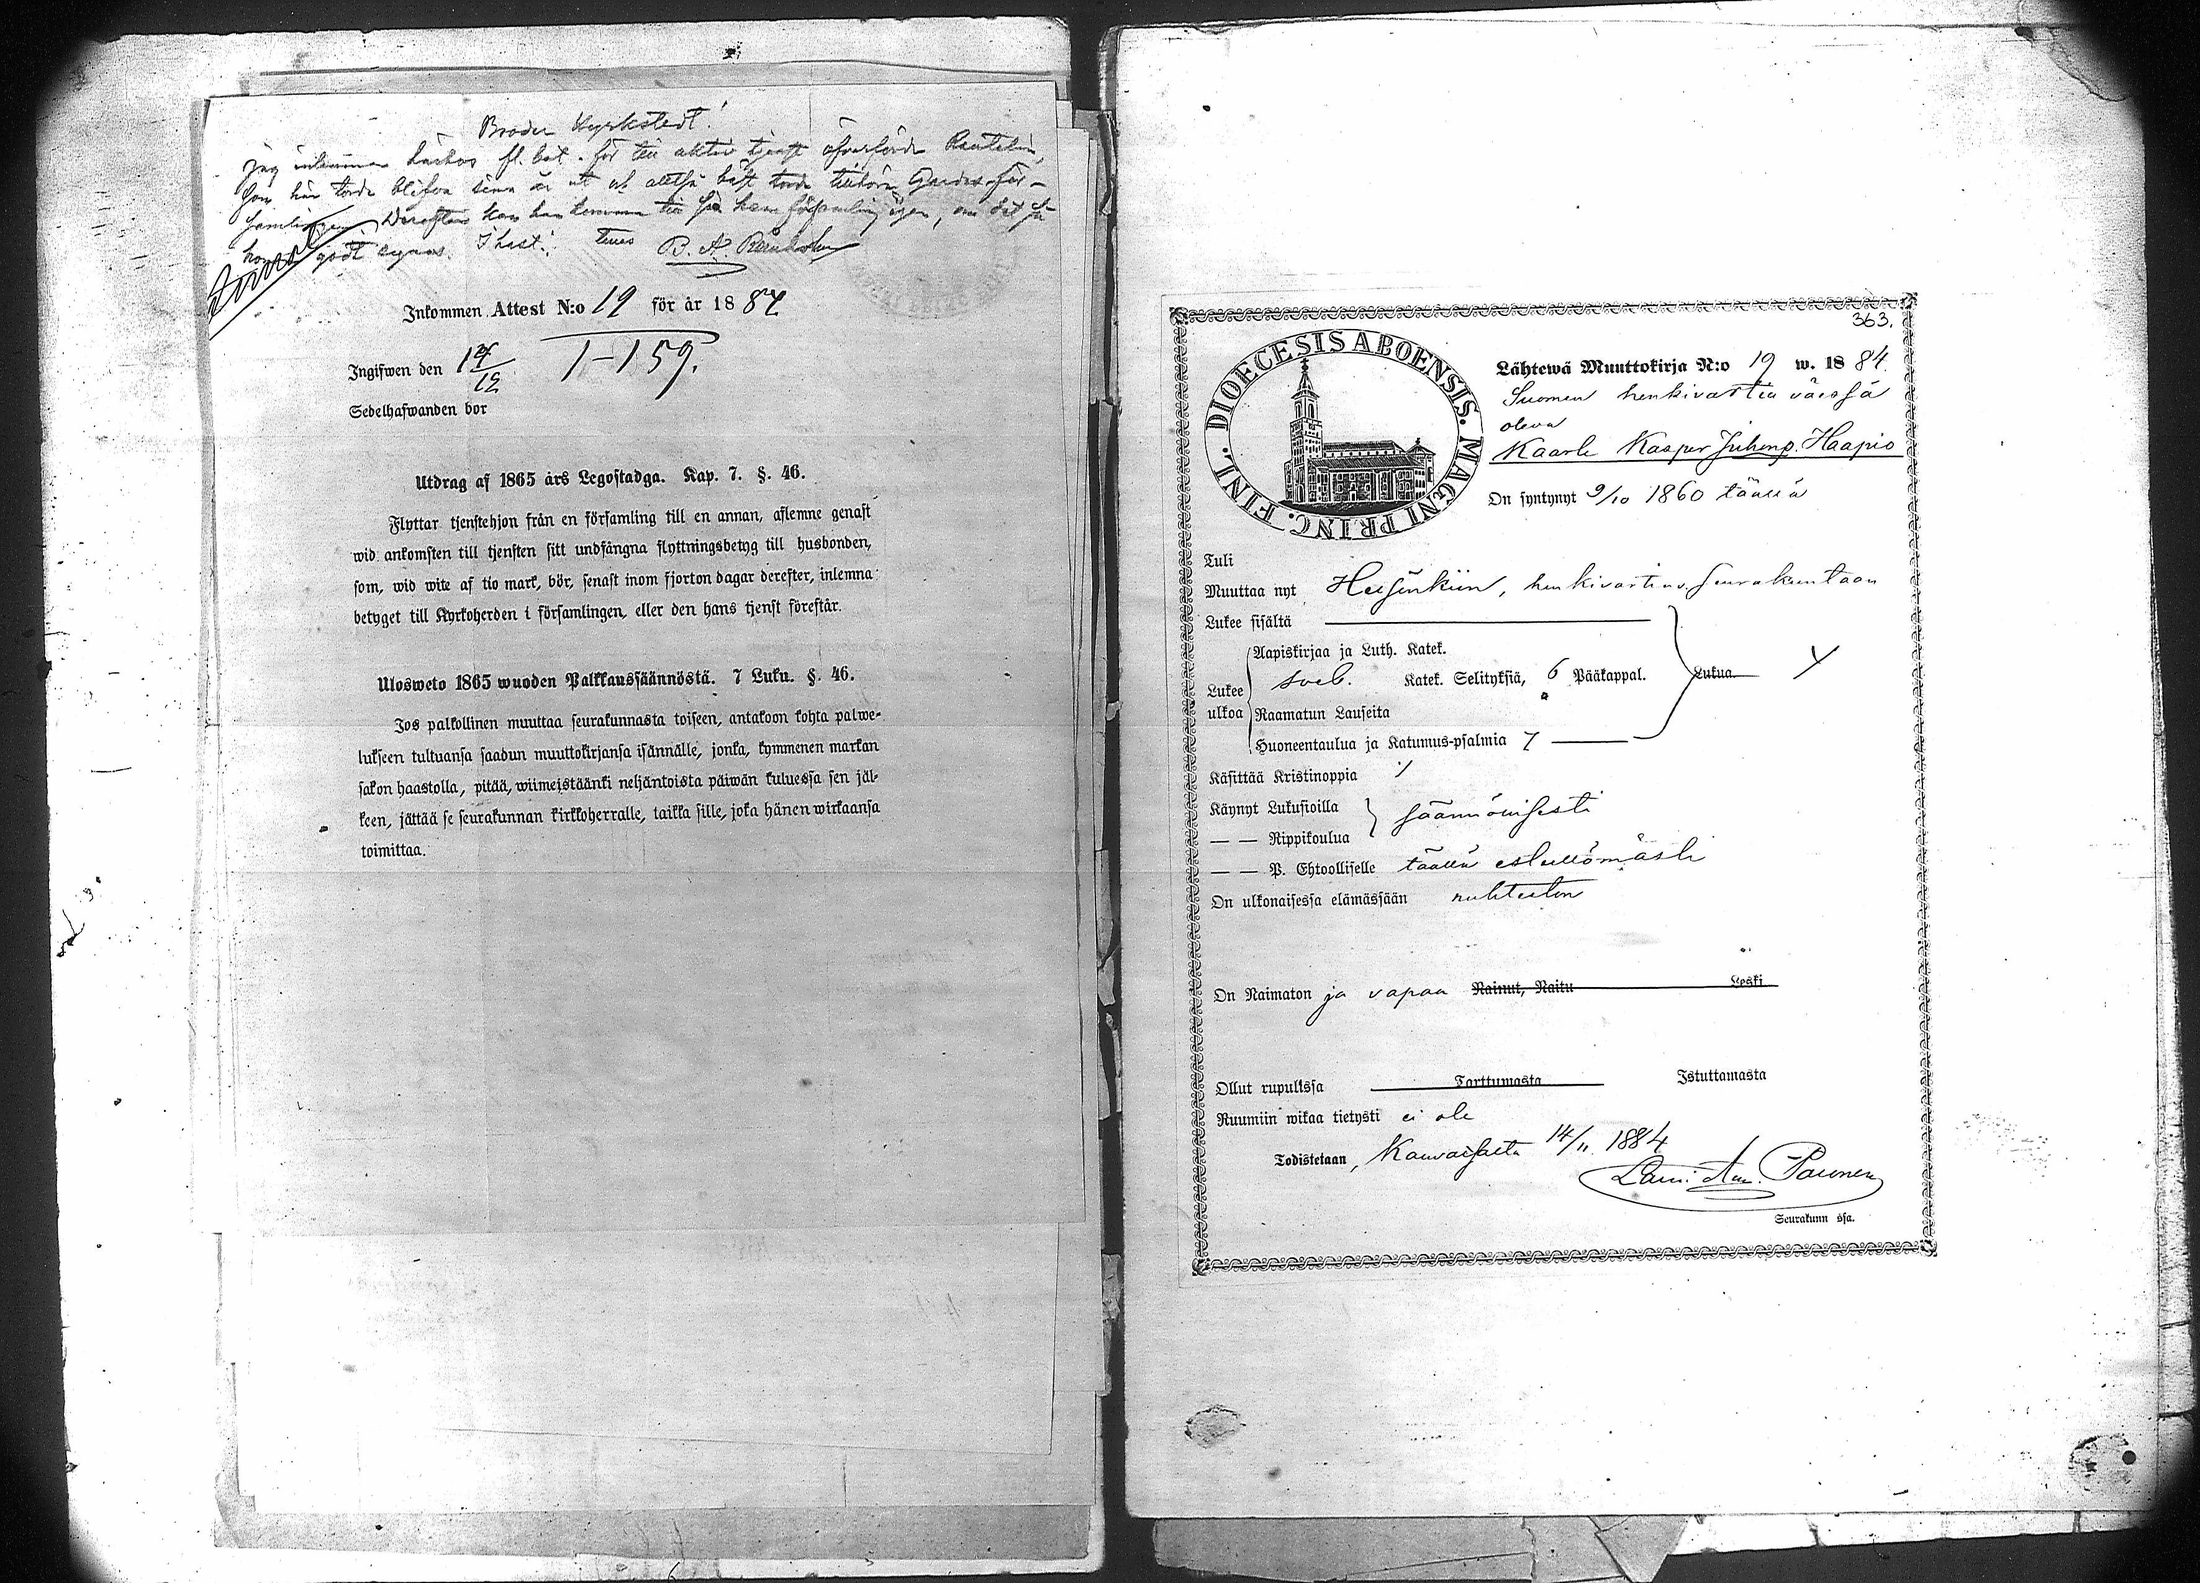 Broder Kyrkstedt!
Jag inlemnar härhos fl. bet. för till aktiv tjenst öfverförde
som här torde blifva sina år ut och alltså bäst torde tillhöra Gardes-för-
samlingen. Derefter kan han komma till församling igen, om det så
godt synes. I hast!
B. A.
Inkommen Attest N:o 19 för år 1884
Ingifwen den 19/12 I-159.
Sedelhafwanden bor
Utdrag af 1865 års Legostadga. Kap. 7. §. 46.
Flyttar tjenstehjon från en församling till en annan, aflemne genast
wid ankomsten till tjensten sitt undfångna flyttningsbetyg till husbonden,
som, wid wite af tio mark, bör, senast inom fjorton dagar derefter, inlemna
betyget till Kyrkoherden i församlingen, eller den hans tjenst förestår.
Ulosweto 1865 wuoden Palkkaussäännöstä. 7 Luku. §. 46.
Jos palkollinen muuttaa seurakunnasta toiseen, antakoon kohta palwe-
lukseen tultuansa saadun muuttokirjansa isännälle, jonka, kymmenen markan
sakon haastolla, pitää, wiimeistäänki neljäntoista päiwän kuluessa sen jäl-
keen, jättää se seurakunnan kirkkoherralle, taikka sille, joka hänen wirkaansa
toimittaa.
363.
DIOECESIS ABOENSIS. MAGNI PRINC. FINL.
Lähtewä Muuttokirja N:o 19 w. 1884.
Suomen henkivartia väessä
oleva
Kaarle Kasper Juhonp. Haapio
On syntynyt 9/10 1860 täällä
Tuli
Muuttaa nyt Helsinkiin, henkivartian seurakuntaan
Lukee sisältä
Aapiskirjaa ja Luth. Katek.
Lukee ulkoa Sveb. Katek. Selityksiä, 6 Pääkappal. Lukua
Raamatun Lauseita
Huoneentaulua ja Katumus-psalmia 7
Käsittää Kristinoppia
Käynyt Lukusioilla säännöllisesti
— — Rippikoulua
— — P. Ehtoolliselle täällä esteettömästi
On ulkonaisessa elämässään nuhteeton
On Naimaton ja vapaa Nainut, Naitu Leski
Ollut rupulissa Tarttumasta Istuttamasta
Ruumiin wikaa tietysti ei ole
Todistetaan, Kauvatsalta 14/11 1884
Lauri Paunen
Seurakunn ssa.